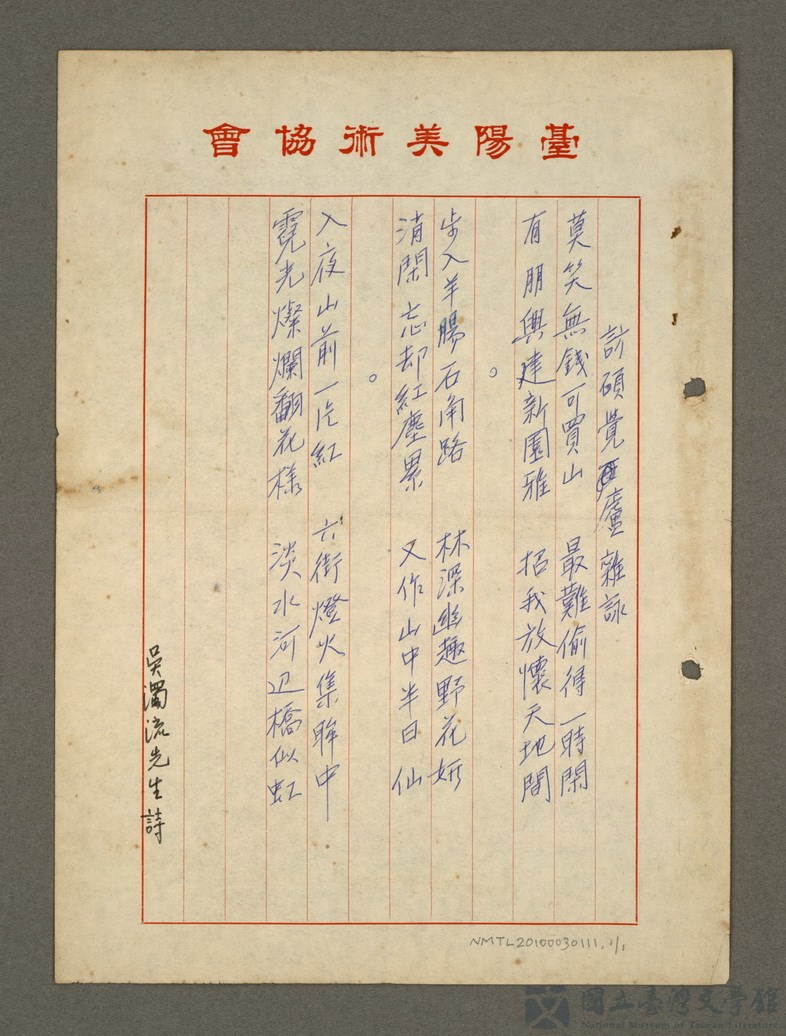 臺陽美術協會
訪碩覺廬雜詠
莫笑無錢可買山　最難偷得一時閑
有朋興建新園雅　招我放懷天地間
。
步入羊腸石角路　林深幽趣野花妍
消閑忘却紅塵累　又作山中半日仙
。
入夜山前一片紅　六街燈火集眸中
霓光燦爛翻花樣　淡水河边橋似虹
吳濁流先生詩
NMTL20100030111, 1/1
國立臺灣文學館
National Museum of Taiwan Literature